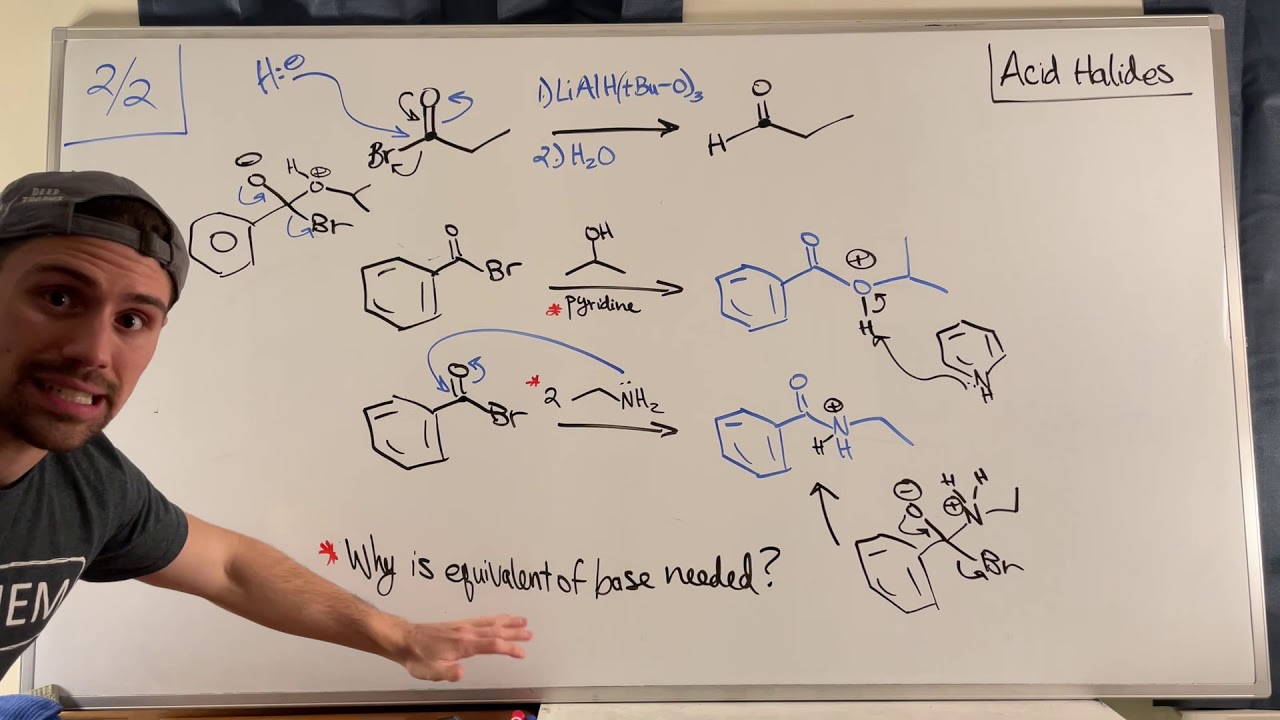 2/2
Acid Halides
H:⊖
O
Br
1.) LiAlH(t-Bu-O)3
2.) H2O
O
H
⊖
O
H
⊕
O
Br
O
Br
OH
* pyridine
O
⊕
O
H
N
H
O
Br
* 2 NH2
O
⊕
N
H
H
⊖
O
H
H
⊕
N
Br
* Why is equivalent of base needed?
DEEP
HEM